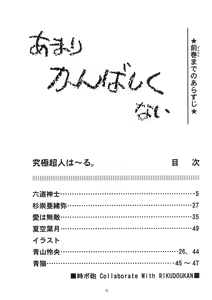 ★前巻までのあらすじ★
あまり
かんばしく
ない
究極超人は〜る。
目　次
六道神士 5
杉崇亜緒弥 27
愛は無敵 35
夏空葉月 49
イラスト
青山怜央 26、44
青猫 45〜47
■時ボ砲 Collaborate With RIKUDOUKAN■